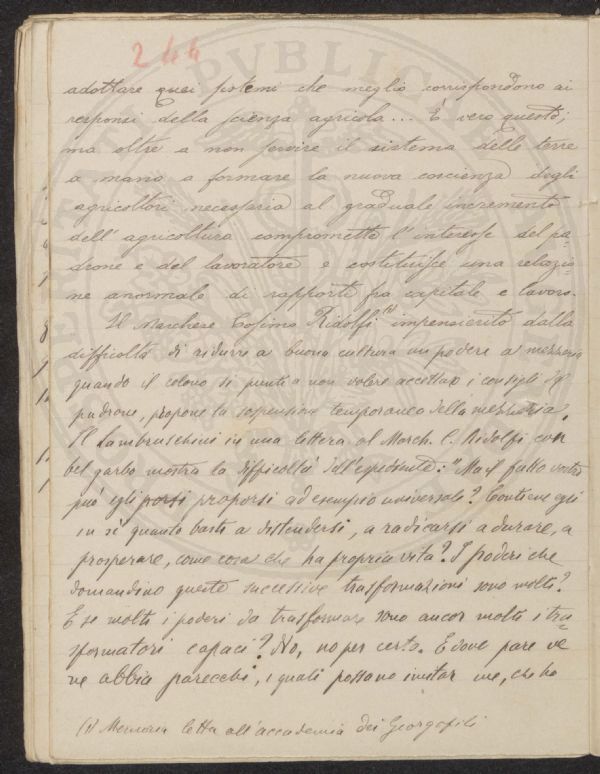 244
adottare quei sistemi che meglio corrispondono ai
responsi della scienza agricola... È vero questo;
ma oltre a non servire il sistema delle terre
a mano a formare la nuova coscienza degli
agricoltori necessaria al graduale incremento
dell'agricoltura compromette l'interesse del pa-
drone e del lavoratore e costituisce una relazio-
ne anormale di rapporti fra capitale e lavoro.
Il Marchese Cosimo Ridolfi (1) impensierito dalla
difficoltà di ridurre a buona cultura un podere a mezzeria
quando il colono si punti a non volere accettare i consigli del
padrone, propone la sospensione temporanea della mezzeria.
Il Lambruschini in una lettera al March. C. Ridolfi con
bel garbo mostra la difficoltà dell'espediente: "Ma il fatto vostro
può egli porsi proporsi ad esempio universale? Contiene egli
in sè quanto basti a distendersi, a radicarsi a durare, a
prosperare, come cosa che ha propria vita? I poderi che
domandino queste successive trasformazioni sono molti?
E se molti i poderi da trasformare sono ancor molti i tra-
sformatori capaci? No, no per certo. E dove pare ve
ne abbia parecchi, i quali possano imitar me, che ho
(1) Memoria letta all'accademia dei Georgofili